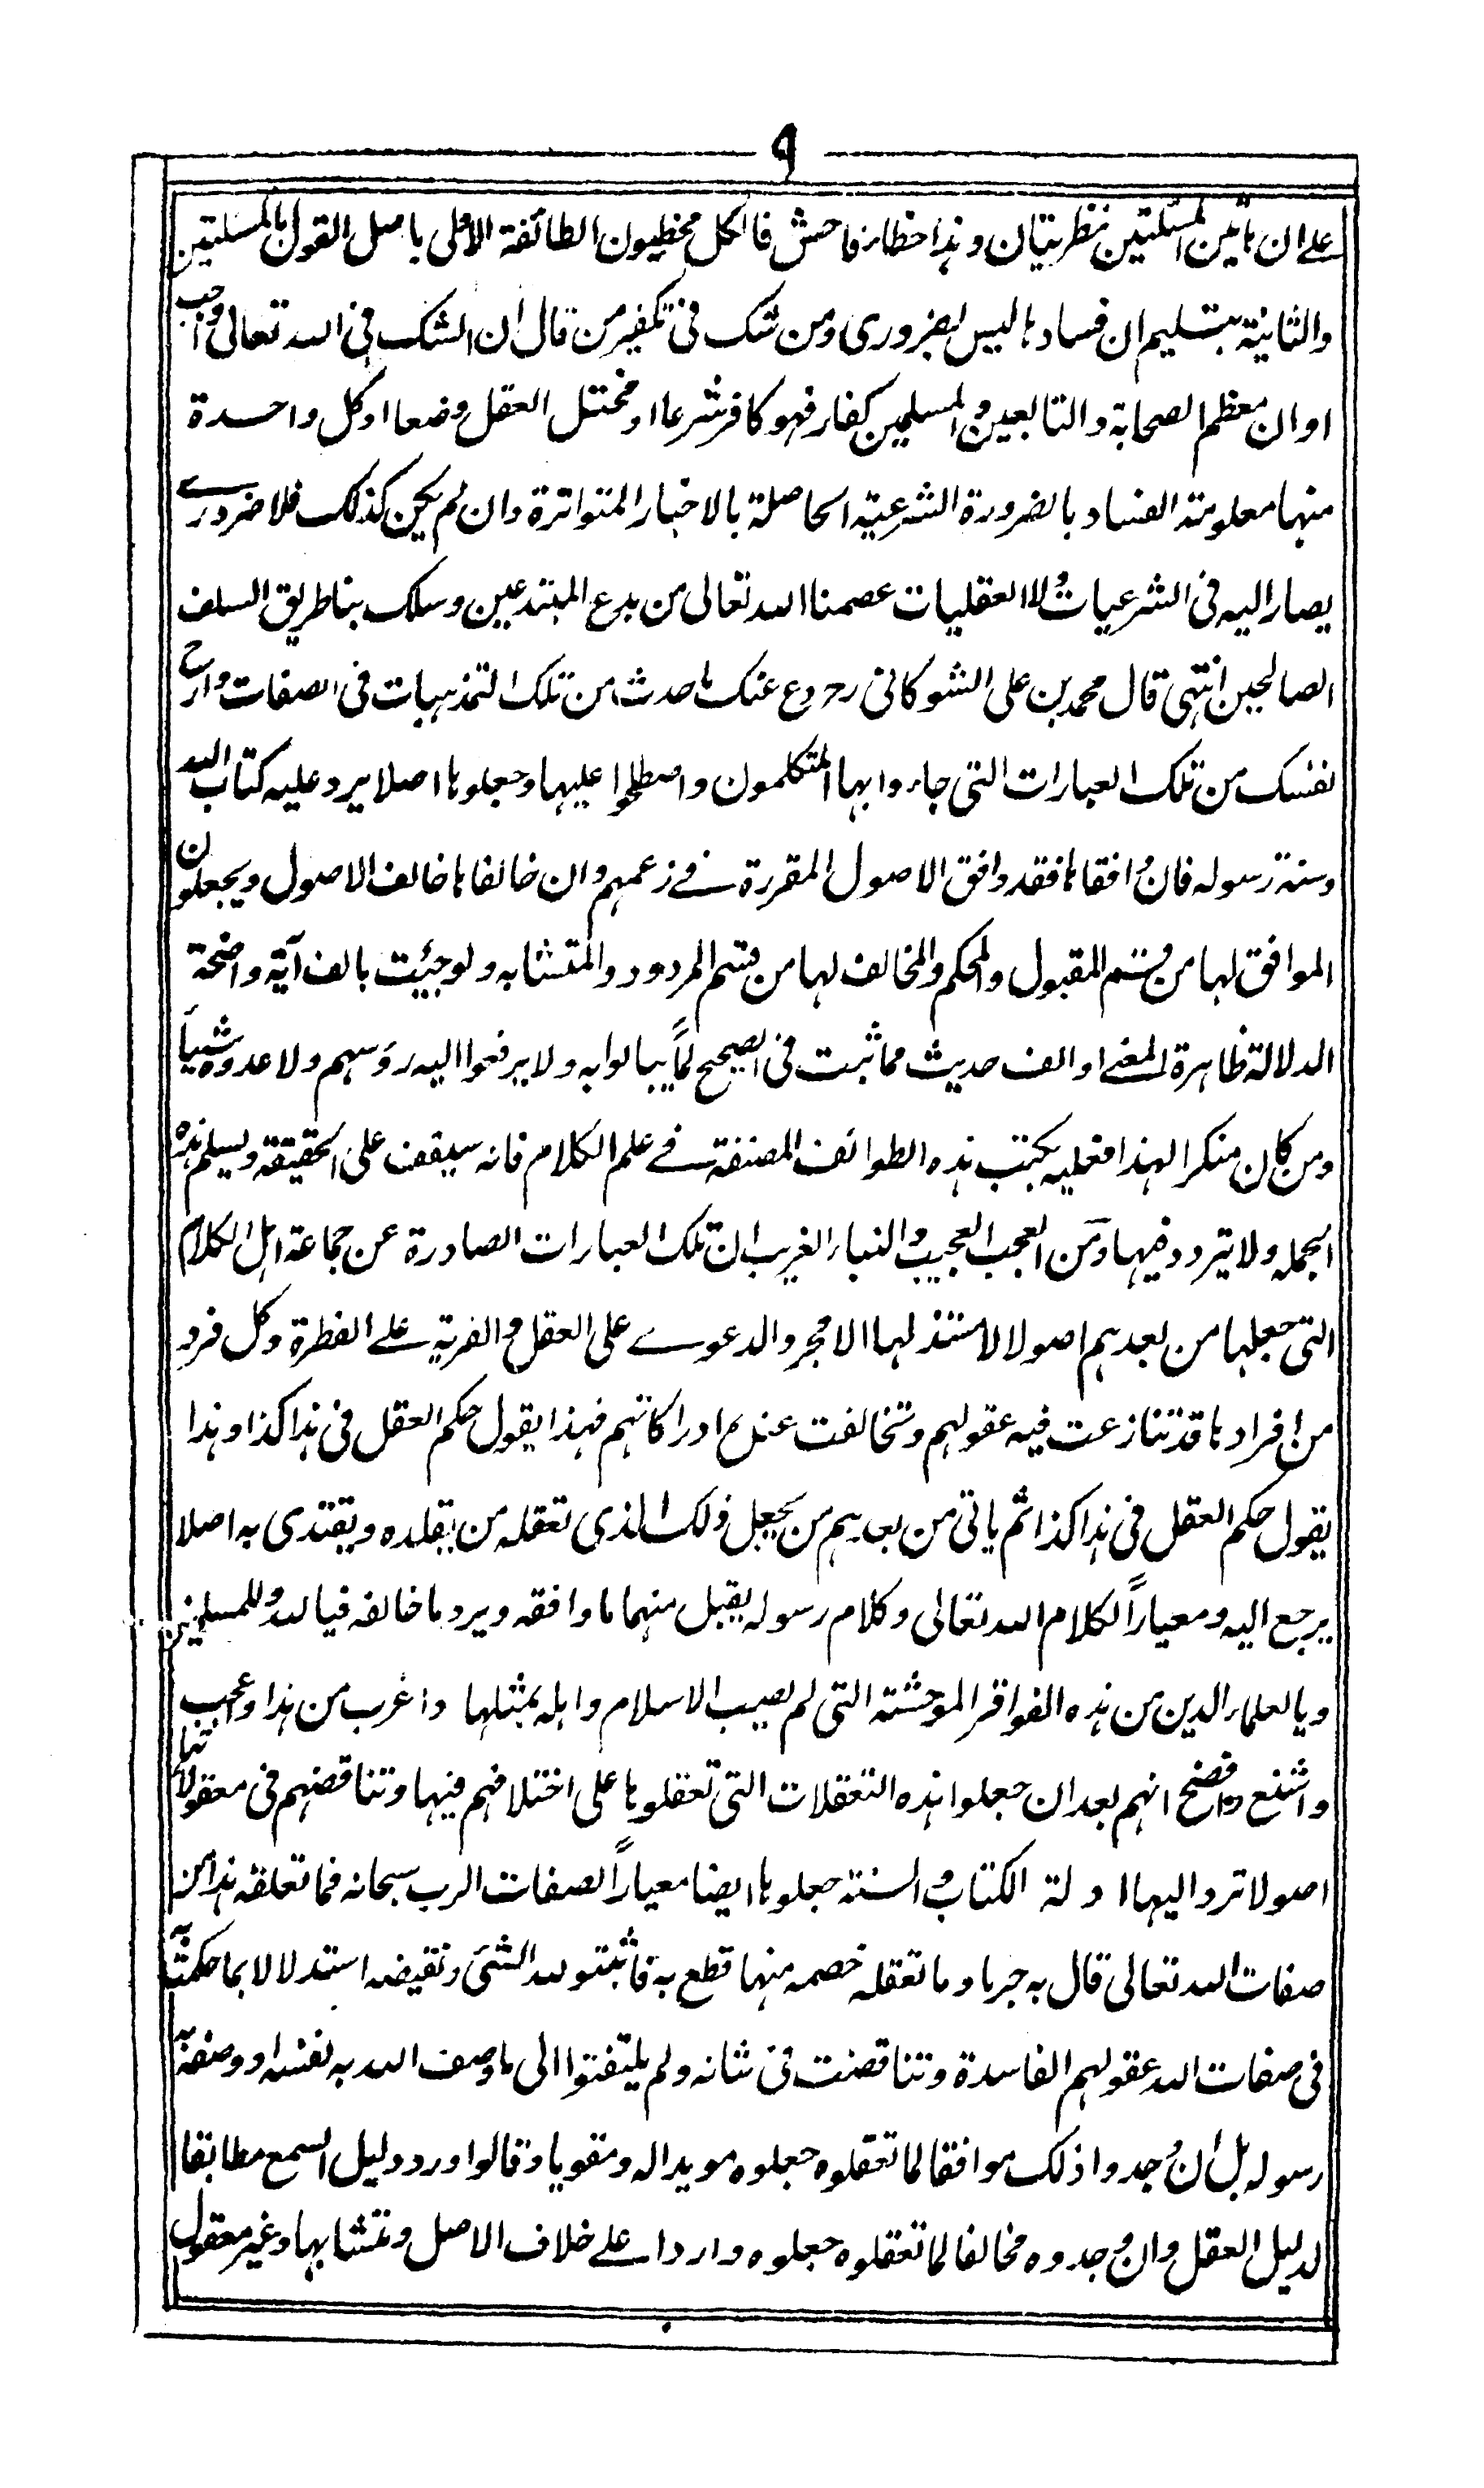 ٩
على ان هاتين المسئلتين نظريتان وهذا خطاء فاحش فالكل مخطيون الطائفة الاولى باصل القول بالمسئلتين
والثانية بتسليم ان فسادها ليس بضرورى ومن شك فى تكفير من قال ان الشك فى الله تعالى واجب
او ان معظم الصحابة والتابعين والمسلمين كفار فهو كافر شرعا او مختل العقل وضعا او كل واحدة
منهما معلومة الفساد بالضرورة الشرعية الحاصلة بالاخبار المتواترة وان لم يكن كذلك فلا ضرورى
يصار اليه فى الشرعيات ولا العقليات عصمنا الله تعالى من بدع المبتدعين وسلك بنا طريق السلف
الصالحين انتهى قال محمد بن على الشوكانى رح ودع عنك ما حدث من تلك التمذهبات فى الصفات وارح
نفسك من تلك العبارات التى جاء وا بها المتكلمون واصطلحوا عليها وجعلوها اصلا يرد عليه كتاب الله
وسنة رسوله فان وافقاها فقد وافق الاصول المقررة فى زعمهم وان خالفاها خالف الاصول ويجعلون
الموافق لها من قسم المقبول والمحكم والمخالف لها من قسم المردود والمتشابه ولو جئت بالف آية واضحة
الدلالة ظاهرة المعنى او الف حديث مما ثبت فى الصحيح لم يبالوا به ولا يرفعوا اليه رؤسهم ولا عدوه شيأ
ومن كان منكرا لهذا فعليه بكتب هذه الطوائف المصنفة فى علم الكلام فانه سيقف على الحقيقة ويسلم هذه
الجملة ولا يتردد فيها ومن العجب العجيب والنباء الغريب ان تلك العبارات الصادرة عن جماعة اهل الكلام
التى جعلها من بعدهم اصولا لا مستند لها الا مجرد الدعوى على العقل والفرية على الفطرة وكل فرد
من افرادها قد تنازعت فيه عقولهم وتخالفت عنده ادراكاتهم فهذا يقول حكم العقل فى هذا كذا وهذا
يقول حكم العقل فى هذا كذا ثم ياتى من بعدهم من يجعل ذلك الذى تعقله من يقلده ويقتدى به اصلا
يرجع اليه ومعياراً لكلام الله تعالى وكلام رسوله يقبل منهما ما وافقه ويرد ما خالفه فيا لله وللمسلمين
ويا لعلماء الدين من هذه الفواقر الموحشة التى لم يصب الاسلام واهله بمثلها واغرب من هذا واعجب
واشنع وافضح انهم بعد ان جعلوا هذه التعقلات التى تعقلوها على اختلافهم فيها وتناقضهم فى معقولاتها
اصولا ترد اليها ادلة الكتاب والسنة جعلوها ايضا معياراً لصفات الرب سبحانه فما تعلقه هذا من
صفات الله تعالى قال به جرما وما تعقله خصمه منها قطع به فاثبتوا لله الشئ ونقيضه استدلالا بما حكمت به
فى صفات الله عقولهم الفاسدة وتناقضت فى شانه ولم يلتفتوا الى ما وصف الله به نفسه او وصفه به
رسوله بل ان وجدوا ذلك موافقا لما تعقلوه جعلوه مويدا له ومقويا وقالوا ورد دليل السمع مطابقا
لدليل العقل وان وجدوه مخالفا لما تعقلوه جعلوه واردا على خلاف الاصل ومتشابها وغير معقول